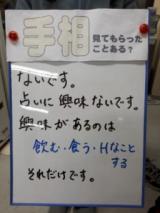 手相
見てもらった
ことある？
ないです。
占いに興味ないです。
興味があるのは
飲む・食う・Hなこと
する
それだけです。